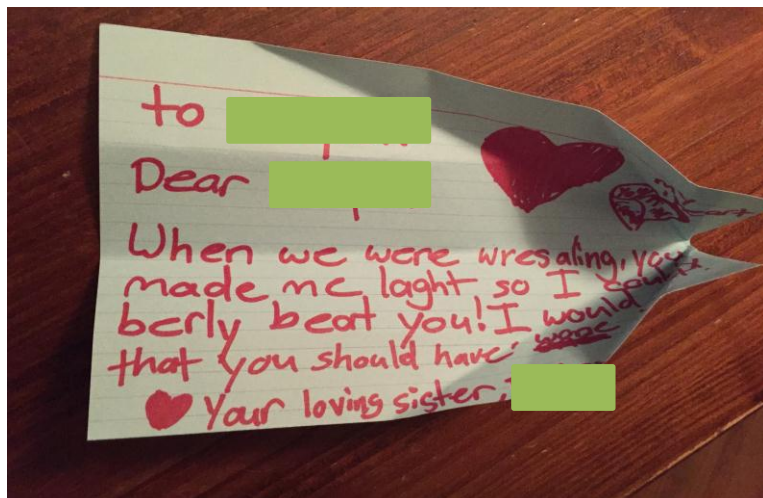 to
Dear
When we were wresaling, you
made me laght so I
berly beat you! I would
that you should have
Your loving sister,